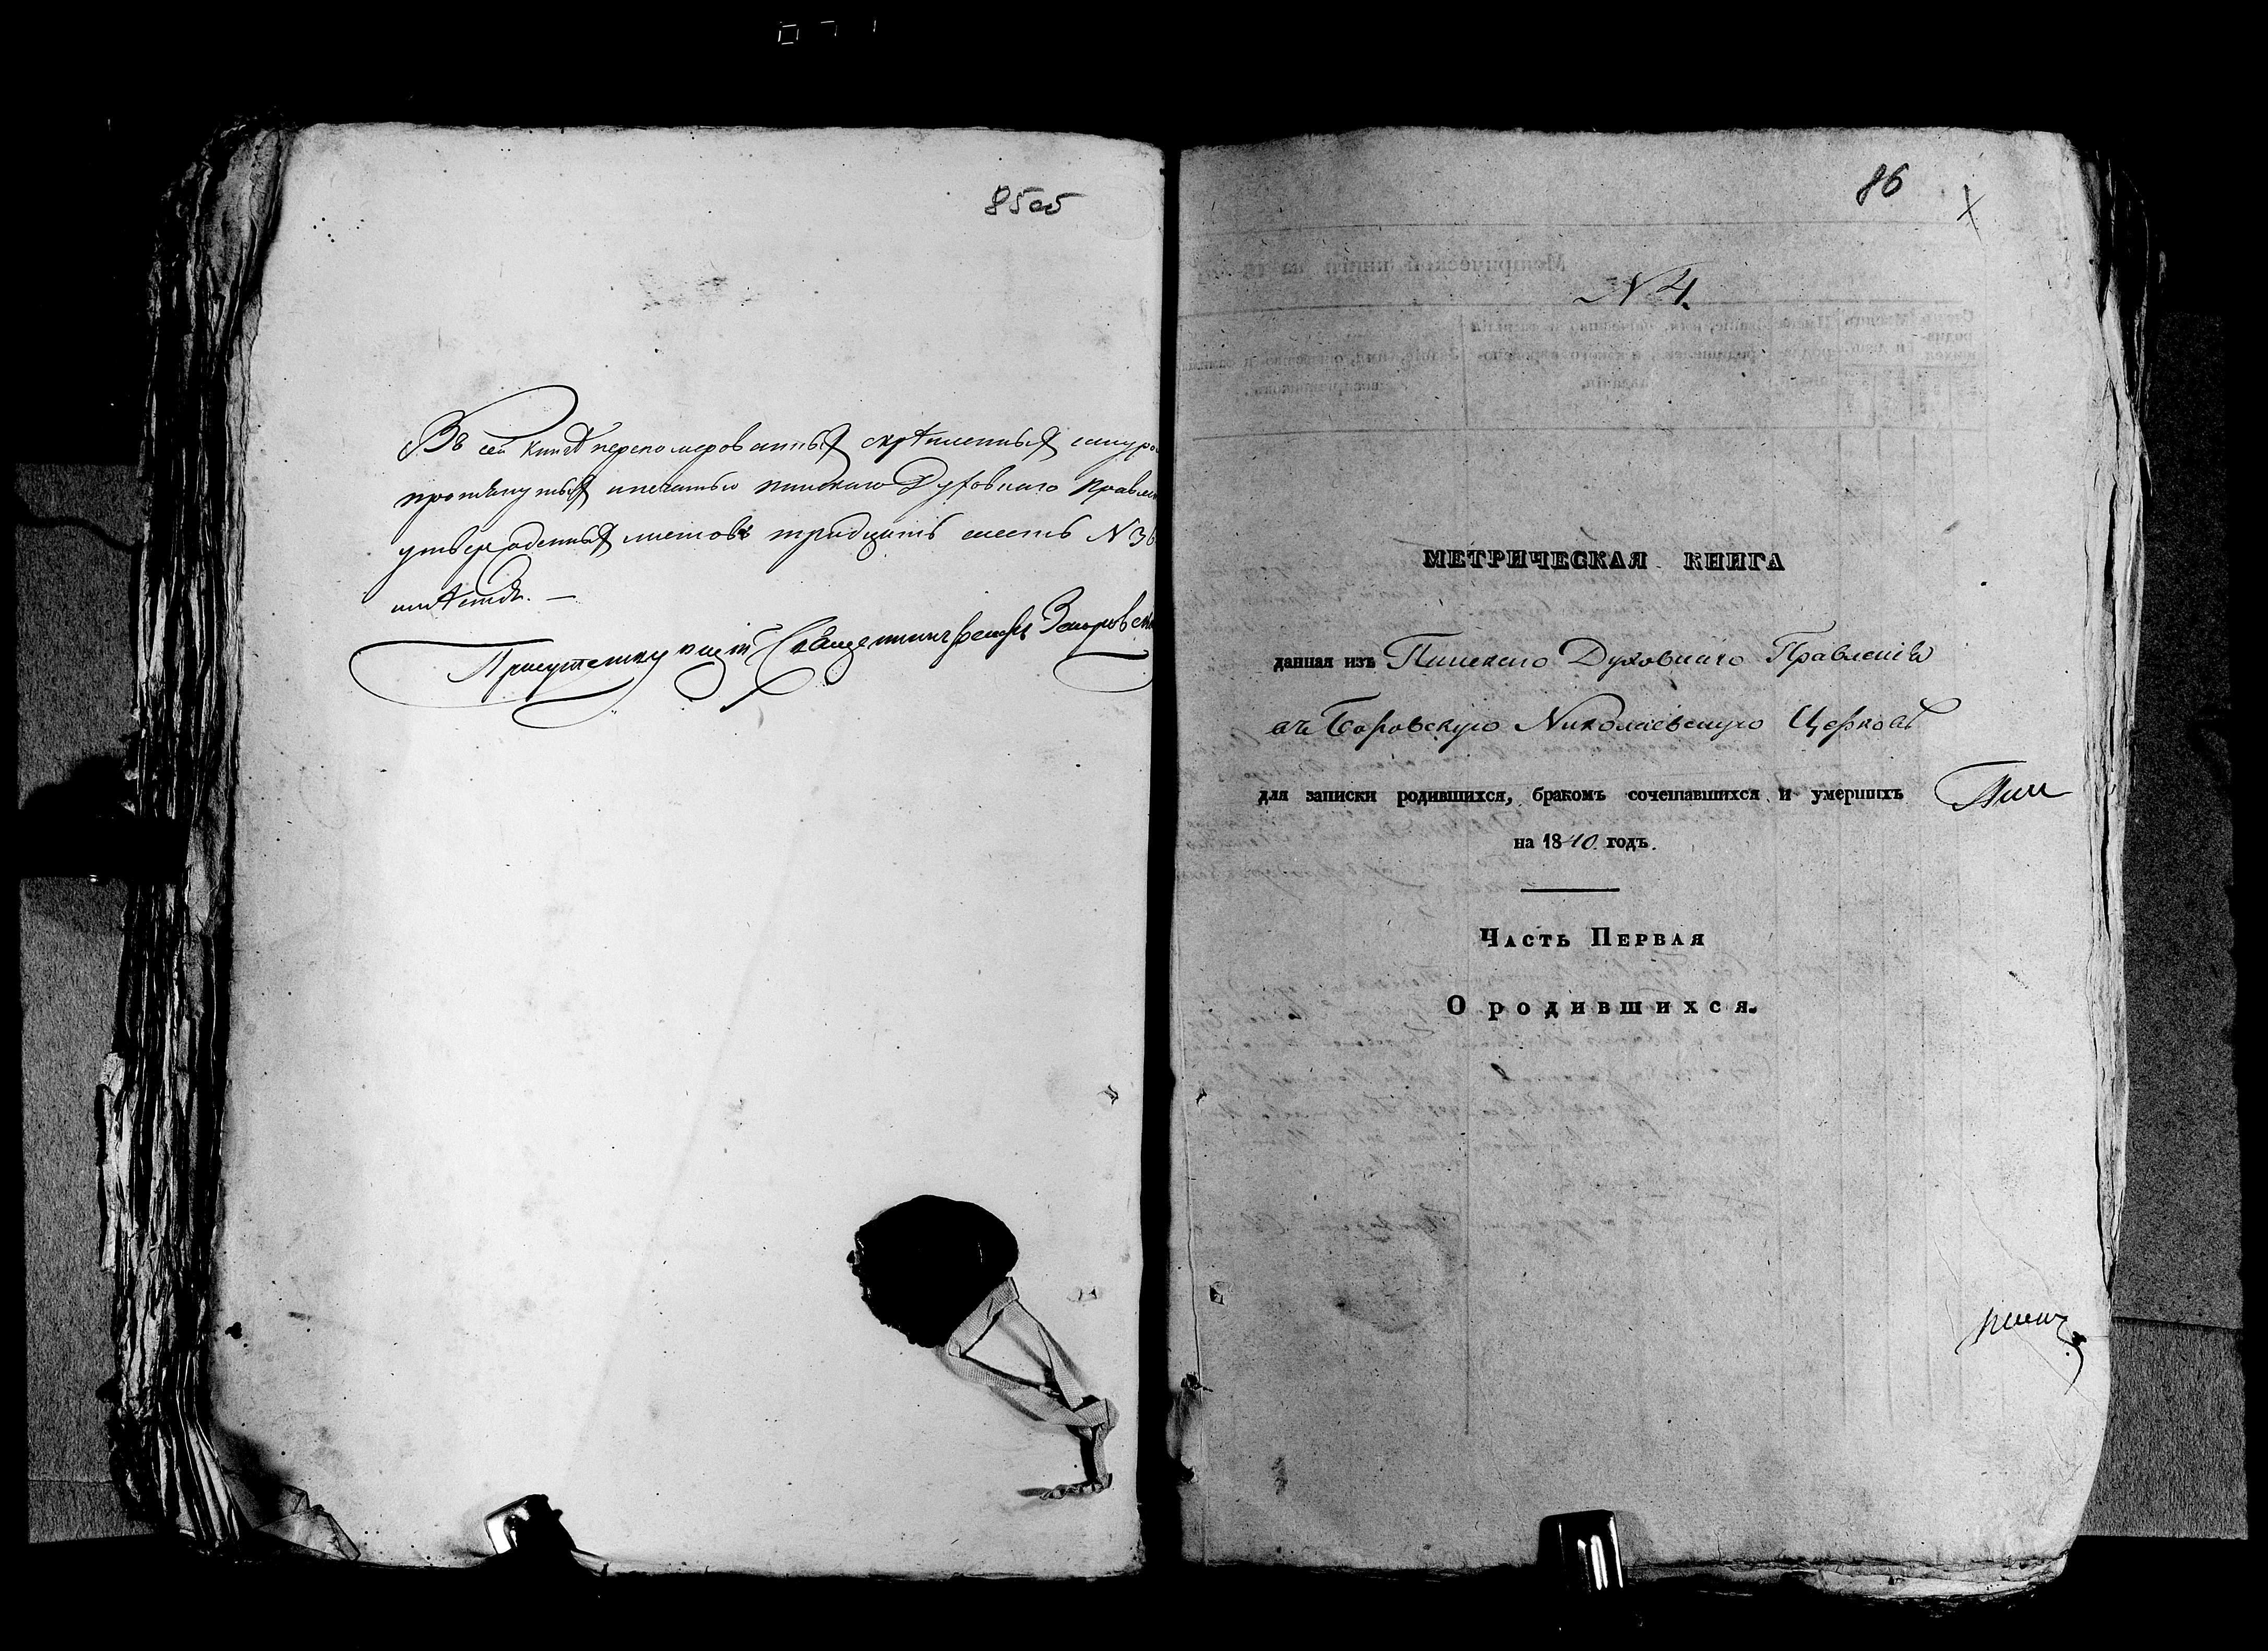 85об
Въ сей книгѣ перенумерованныхъ скрѣпленныхъ шнуро
протянутыхъ и печатью пинскаго Духовнаго Правлен
утвержденныхъ листовъ тридцать шесть N 36
Присутствующій Священник
86
N 4.
МЕТРИЧЕСКАЯ КНИГА
данная изъ Пинскаго Духовнаго Правленія
въ Боровскую Николаевскую Церковь
для записки родившихся, бракомъ сочетавшихся и умершихъ
Пин
на 1840 годъ.
Часть Первая
О родившихся.